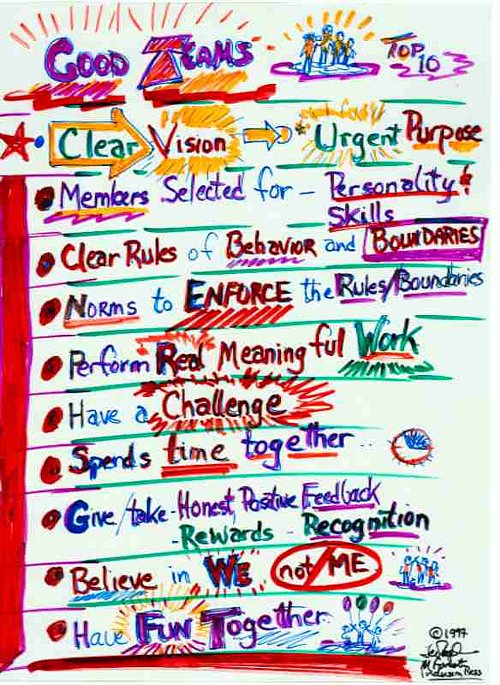 GOOD TEAMS TOP 10
Clear Vision Urgent Purpose
Members Selected for - Personality &
Skills
Clear Rules of Behavior and BOUNDARIES
NORMS to ENFORCE the Rules/Boundaries
Perform Real Meaningful Work
Have a Challenge
Spends time together..
Give/take - Honest, Positive Feedback
- Rewards - Recognition
Believe in WE not/ME
Have FUN Together
©1997
Press